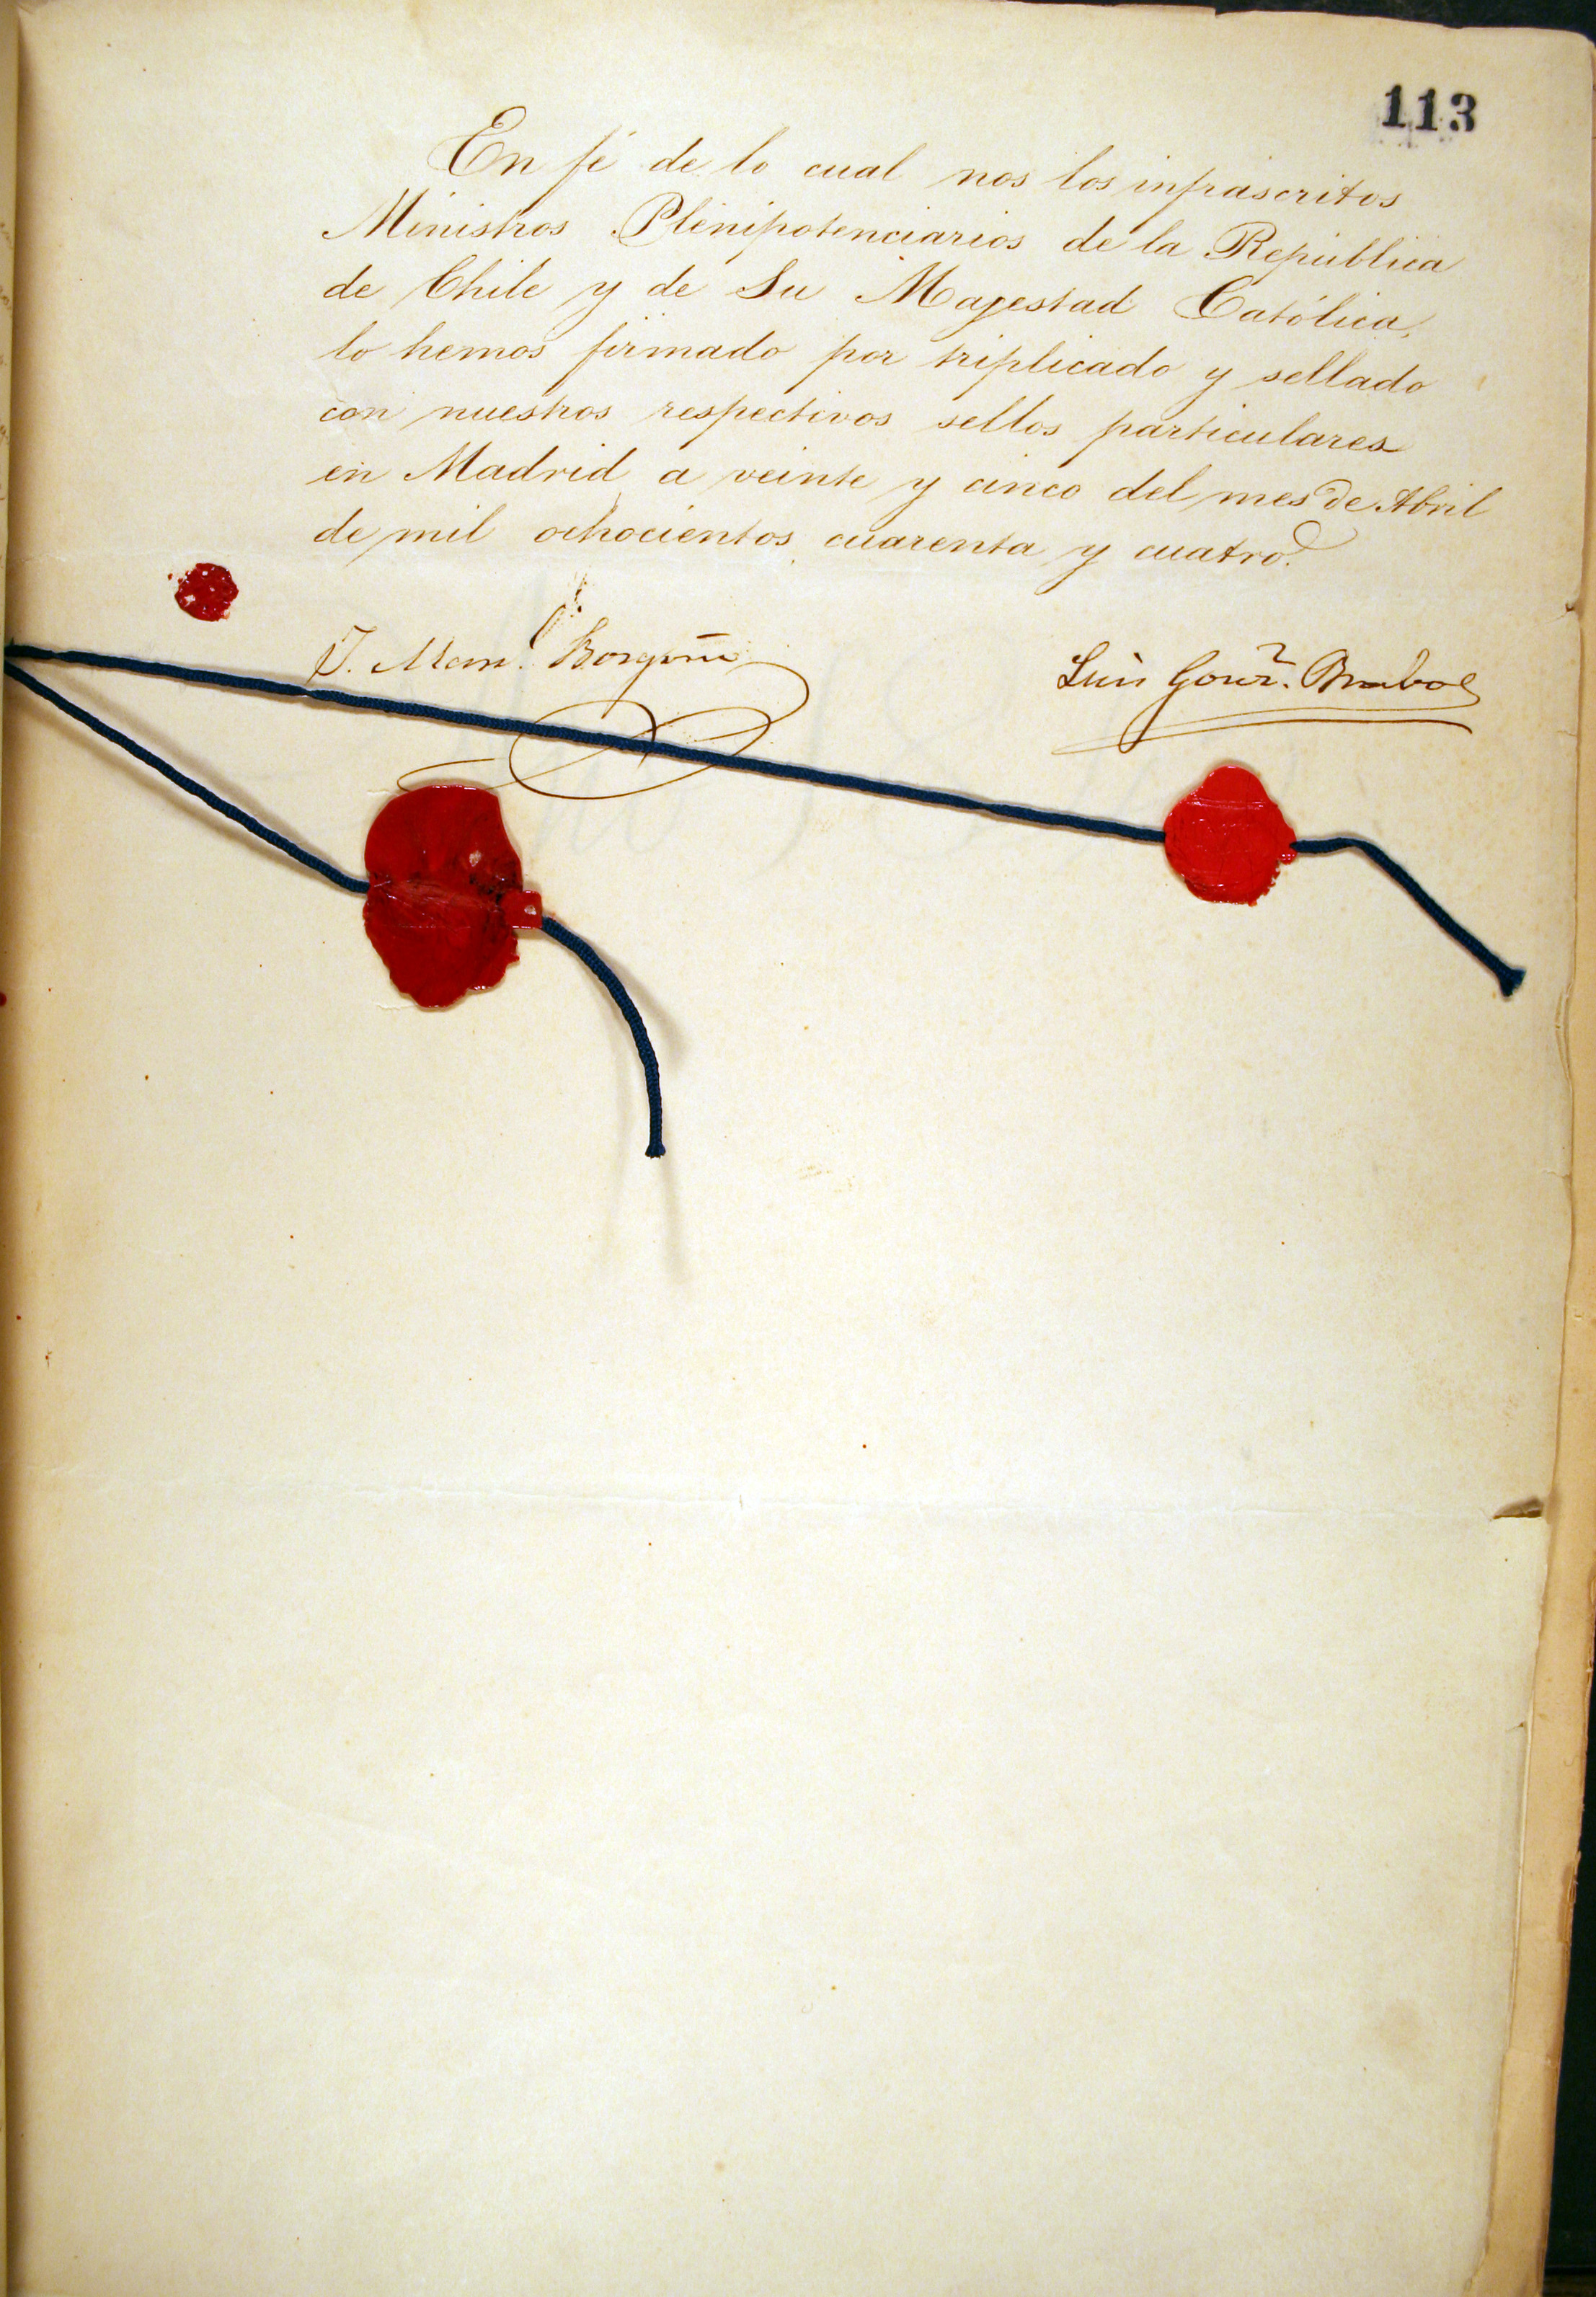 113
En fé de lo cual nos los infrascritos
Ministros Plenipotenciarios de la República
de Chile y de Su Magestad Católica,
lo hemos firmado por triplicado y sellado
con nuestros respectivos sellos particulares
en Madrid a veinte y cinco del mes de Abril
de mil ochocientos cuarenta y cuatro.
J. Man.l Borgoño
Luis Gonz. Brabo